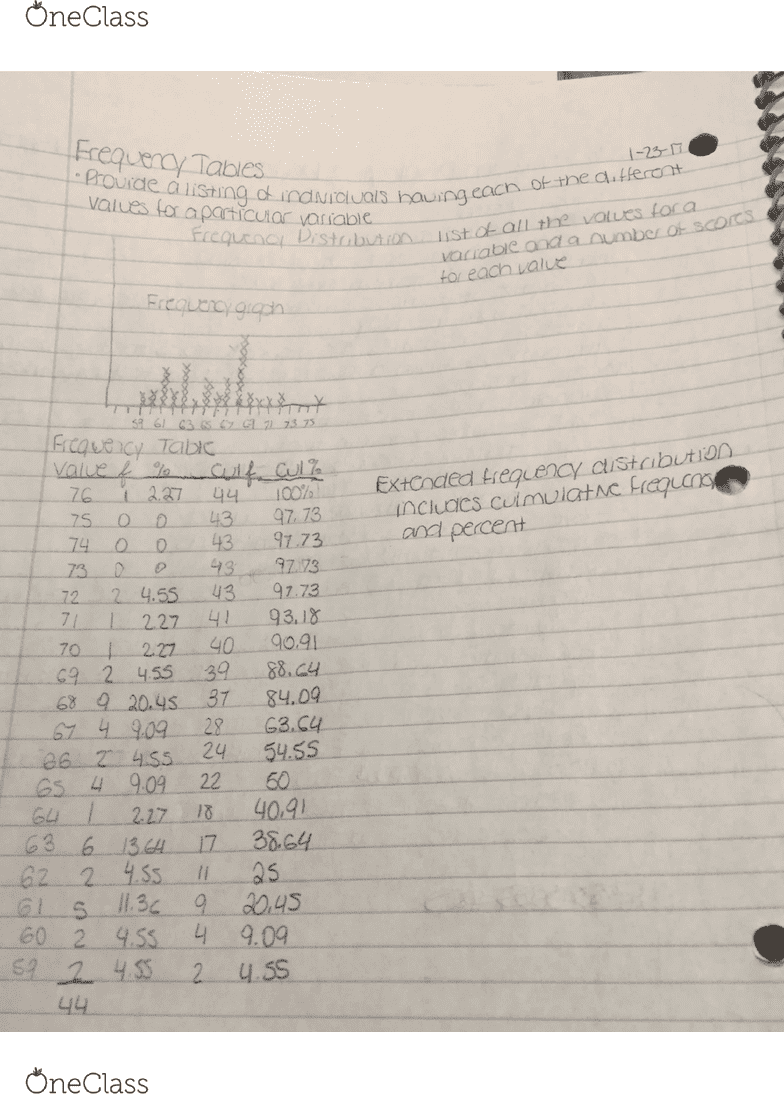 OneClass
1-23-17
Frequency Tables
• Provide a listing of individuals having each of the different
values for a particular variable
Frequency Distribution list of all the values for a
variable and a number of scores
for each value
Frequency graph
59 61 63 65 67 69 71 73 75
Frequency Table
Value f % Cul f Cul %
76 1 2.27 44 100%
75 0 0 43 97.73
74 0 0 43 97.73
73 0 0 43 97.73
72 2 4.55 43 97.73
71 1 2.27 41 93.18
70 1 2.27 40 90.91
69 2 4.55 39 88.64
68 9 20.45 37 84.09
67 4 9.09 28 63.64
66 2 4.55 24 54.55
65 4 9.09 22 50
64 1 2.27 18 40.91
63 6 13.64 17 38.64
62 2 4.55 11 25
61 5 11.36 9 20.45
60 2 4.55 4 9.09
59 2 4.55 2 4.55
44
Extended frequency distribution
includes culmulative frequency
and percent
OneClass